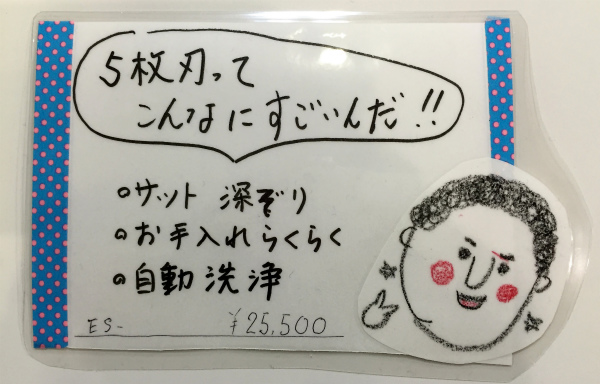 5枚刃って
こんなにすごいんだ!!
○サット 深ぞり
○お手入れらくらく
○自動洗浄
ES- ¥25,500